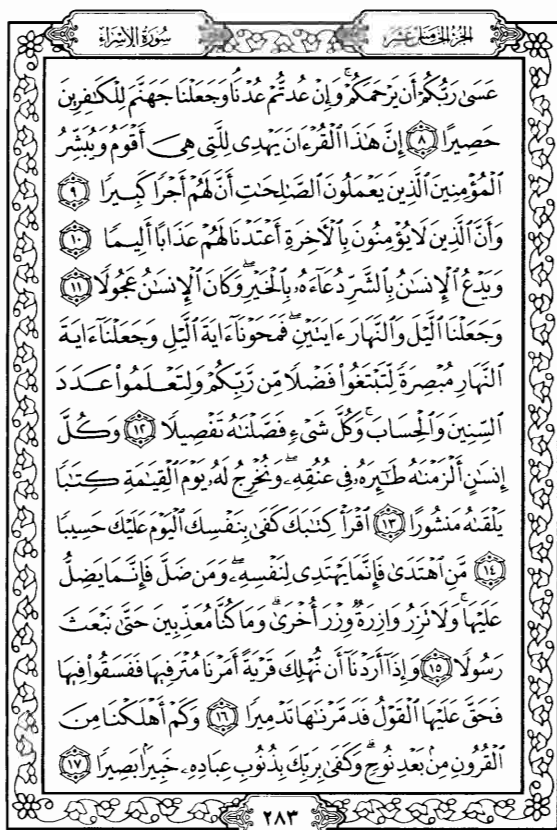 الجزء الخامس عشر
سورة الإسراء
عَسَىٰ رَبُّكُمْ أَن يَرْحَمَكُمْ ۚ وَإِنْ عُدتُّمْ عُدْنَا وَجَعَلْنَا جَهَنَّمَ لِلْكَٰفِرِينَ
حَصِيرًا ٨ إِنَّ هَٰذَا ٱلْقُرْءَانَ يَهْدِى لِلَّتِى هِىَ أَقْوَمُ وَيُبَشِّرُ
ٱلْمُؤْمِنِينَ ٱلَّذِينَ يَعْمَلُونَ ٱلصَّٰلِحَٰتِ أَنَّ لَهُمْ أَجْرًا كَبِيرًا ٩
وَأَنَّ ٱلَّذِينَ لَا يُؤْمِنُونَ بِٱلْءَاخِرَةِ أَعْتَدْنَا لَهُمْ عَذَابًا أَلِيمًا ١٠
وَيَدْعُ ٱلْإِنسَٰنُ بِٱلشَّرِّ دُعَآءَهُۥ بِٱلْخَيْرِ ۖ وَكَانَ ٱلْإِنسَٰنُ عَجُولًا ١١
وَجَعَلْنَا ٱلَّيْلَ وَٱلنَّهَارَ ءَايَتَيْنِ ۖ فَمَحَوْنَآ ءَايَةَ ٱلَّيْلِ وَجَعَلْنَآ ءَايَةَ
ٱلنَّهَارِ مُبْصِرَةً لِّتَبْتَغُوا۟ فَضْلًا مِّن رَّبِّكُمْ وَلِتَعْلَمُوا۟ عَدَدَ
ٱلسِّنِينَ وَٱلْحِسَابَ ۚ وَكُلَّ شَىْءٍ فَصَّلْنَٰهُ تَفْصِيلًا ١٢ وَكُلَّ
إِنسَٰنٍ أَلْزَمْنَٰهُ طَٰٓئِرَهُۥ فِى عُنُقِهِۦ ۖ وَنُخْرِجُ لَهُۥ يَوْمَ ٱلْقِيَٰمَةِ كِتَٰبًا
يَلْقَىٰهُ مَنشُورًا ١٣ ٱقْرَأْ كِتَٰبَكَ كَفَىٰ بِنَفْسِكَ ٱلْيَوْمَ عَلَيْكَ حَسِيبًا
١٤ مَّنِ ٱهْتَدَىٰ فَإِنَّمَا يَهْتَدِى لِنَفْسِهِۦ ۖ وَمَن ضَلَّ فَإِنَّمَا يَضِلُّ
عَلَيْهَا ۚ وَلَا تَزِرُ وَازِرَةٌ وِزْرَ أُخْرَىٰ ۗ وَمَا كُنَّا مُعَذِّبِينَ حَتَّىٰ نَبْعَثَ
رَسُولًا ١٥ وَإِذَآ أَرَدْنَآ أَن نُّهْلِكَ قَرْيَةً أَمَرْنَا مُتْرَفِيهَا فَفَسَقُوا۟ فِيهَا
فَحَقَّ عَلَيْهَا ٱلْقَوْلُ فَدَمَّرْنَٰهَا تَدْمِيرًا ١٦ وَكَمْ أَهْلَكْنَا مِنَ
ٱلْقُرُونِ مِنۢ بَعْدِ نُوحٍ ۗ وَكَفَىٰ بِرَبِّكَ بِذُنُوبِ عِبَادِهِۦ خَبِيرًۢا بَصِيرًا ١٧
٢٨٣